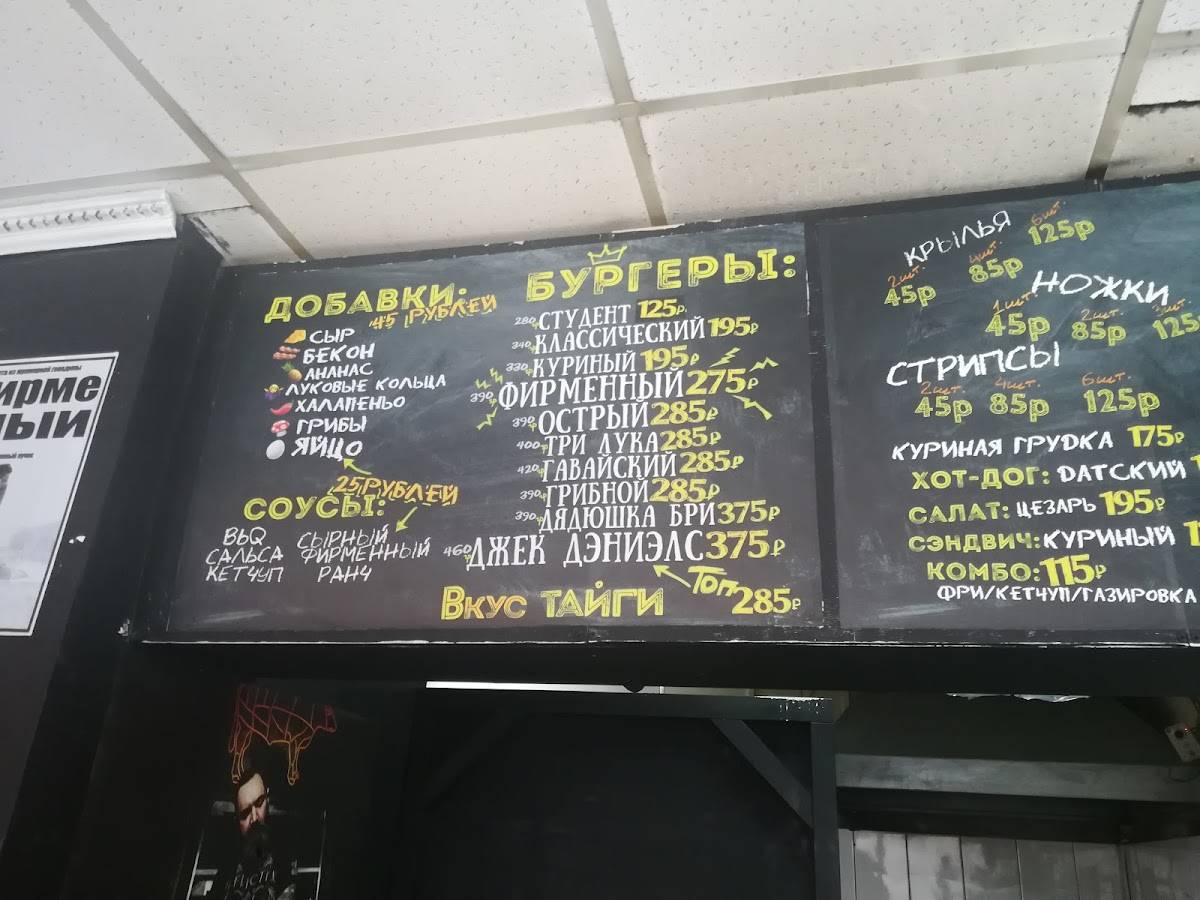 ирме
ный
ДОБАВКИ:
45 РУБЛЕЙ
СЫР
БЕКОН
АНАНАС
ЛУКОВЫЕ КОЛЬЦА
ХАЛАПЕНЬО
ГРИБЫ
ЯЙЦО
25 РУБЛЕЙ
СОУСЫ:
BbQ СЫРНЫЙ
САЛЬСА ФИРМЕННЫЙ
КЕТЧУП РАНЧ
БУРГЕРЫ:
280г СТУДЕНТ 125Р
340г КЛАССИЧЕСКИЙ 195Р
330г КУРИНЫЙ 195Р
390г ФИРМЕННЫЙ 275Р
390г ОСТРЫЙ 285Р
400г ТРИ ЛУКА 285Р
420г ГАВАЙСКИЙ 285Р
390г ГРИБНОЙ 285Р
390г ДЯДЮШКА БРИ 375Р
460г ДЖЕК ДЭНИЭЛС 375Р
Топ
ВКУС ТАЙГИ 285Р
КРЫЛЬЯ
2шт. 4шт. 6шт.
45р 85р 125р
НОЖКИ
1шт. 2шт. 3шт.
45р 85р 125
СТРИПСЫ
2шт. 4шт. 6шт.
45р 85р 125р
КУРИНАЯ ГРУДКА 175Р
ХОТ-ДОГ: DАТСКИЙ 1
САЛАТ: ЦЕЗАРЬ 195Р
СЭНДВИЧ: КУРИНЫЙ 1
КОМБО: 115Р
ФРИ/КЕТЧУП/ГАЗИРОВКА